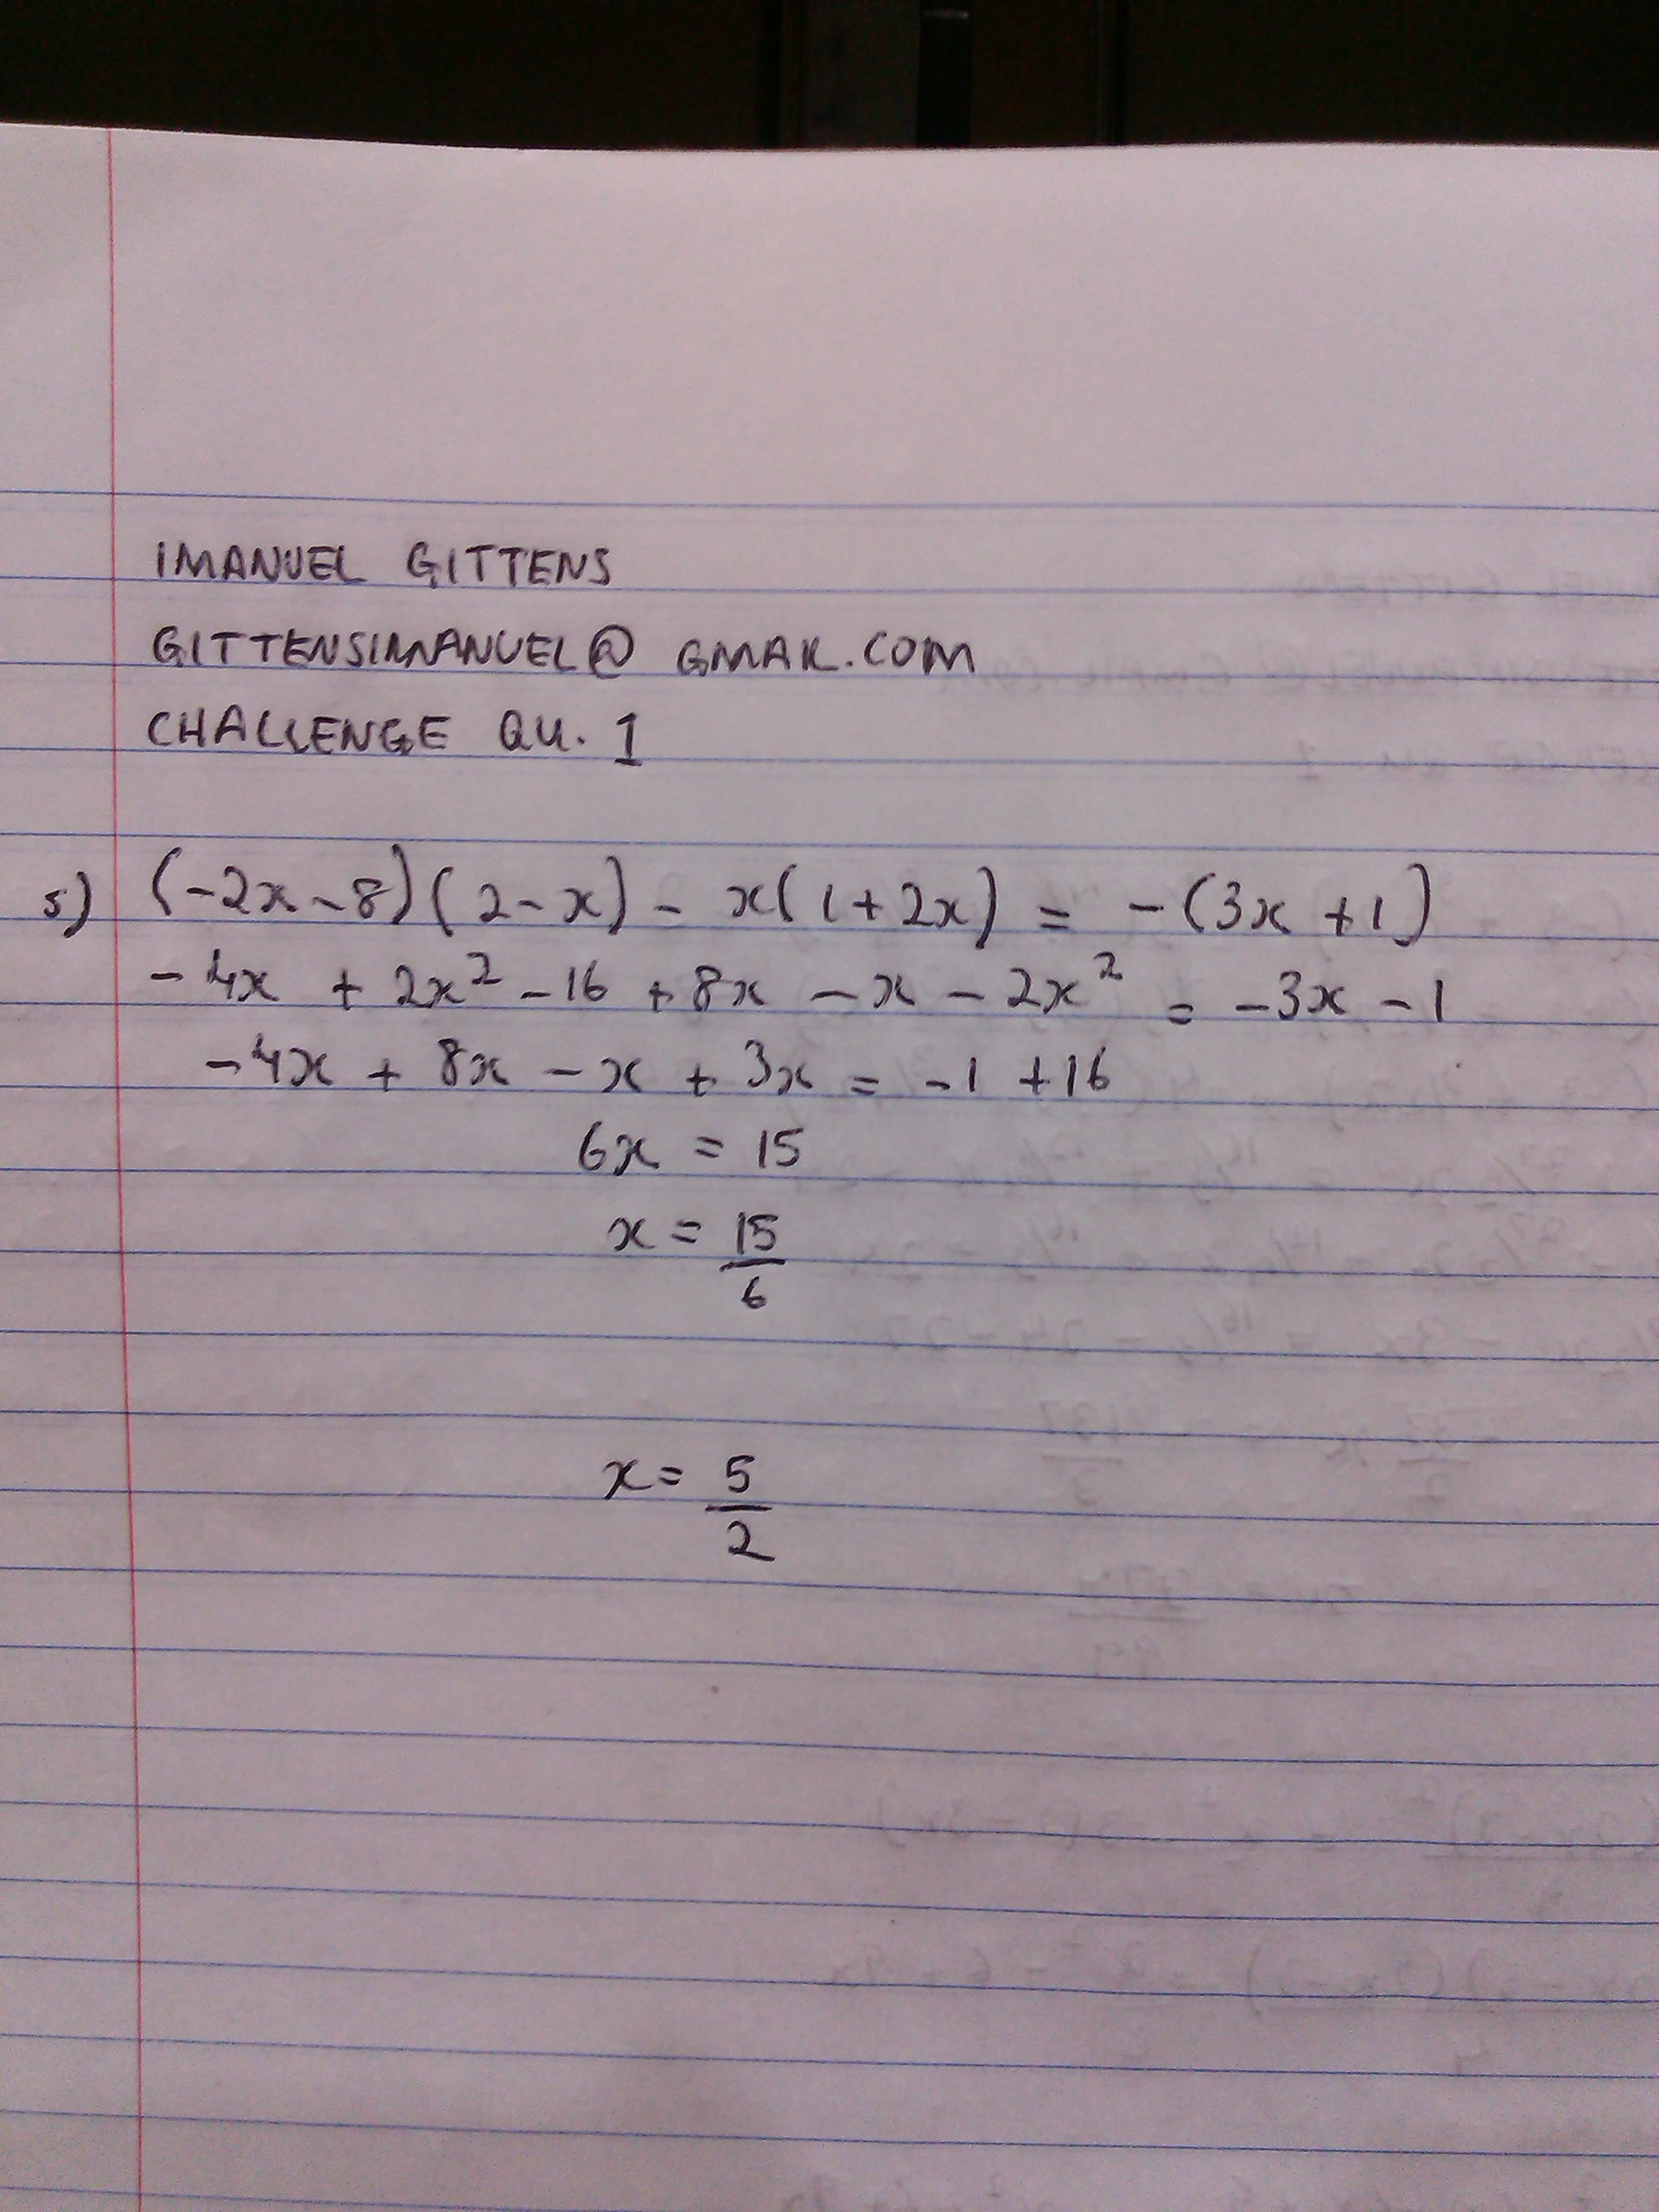 IMANUEL GITTENS
GITTENSIMANUEL@ GMAIL.COM
CHALLENGE QU. 1
5) (-2x-8)(2-x) - x(1+2x) = -(3x+1)
-4x + 2x² - 16 + 8x - x - 2x² = -3x - 1
-4x + 8x - x + 3x = -1 + 16
6x = 15
x = 15/6
x = 5/2